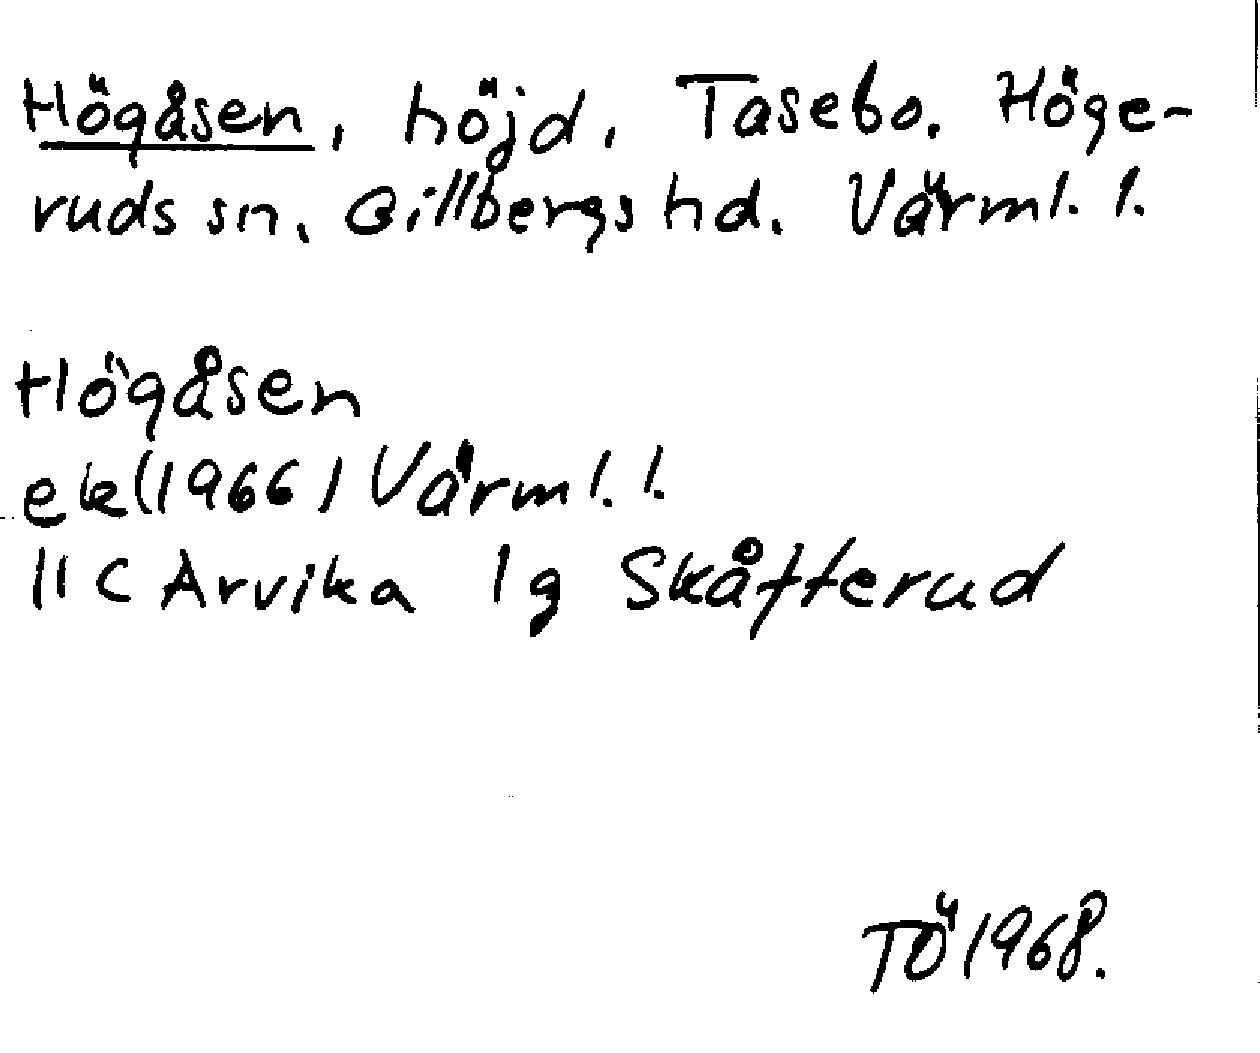 Högåsen, höjd, Tasebo. Höge-
ruds sn. Gillbergs hd. Värml. l.
Högåsen
ek (1966) Värml. l.
11 C Arvika 1 g Skåfterud
TÖ 1968.